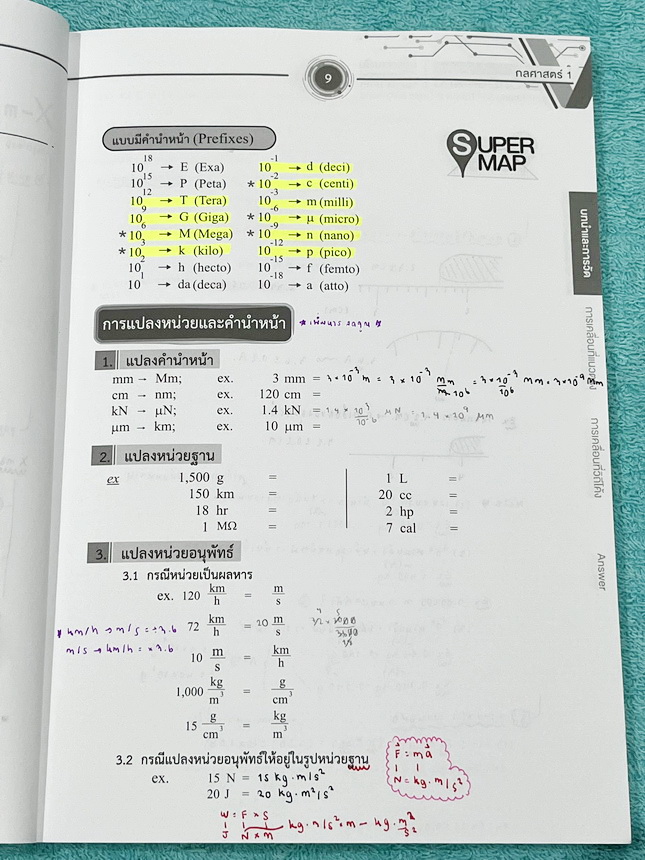 9
กลศาสตร์ 1
แบบมีคำนำหน้า (Prefixes)
SUPER
MAP
10^18 → E (Exa) 10^-1 → d (deci)
10^15 → P (Peta) * 10^-2 → c (centi)
10^12 → T (Tera) 10^-3 → m (milli)
10^9 → G (Giga) * 10^-6 → µ (micro)
* 10^6 → M (Mega) * 10^-9 → n (nano)
* 10^3 → k (kilo) 10^-12 → p (pico)
10^2 → h (hecto) 10^-15 → f (femto)
10^1 → da (deca) 10^-18 → a (atto)
บทนำและการวัด
การแปลงหน่วยและคำนำหน้า
1. แปลงคำนำหน้า
mm → Mm; ex. 3 mm = 3 × 10^-3 m = 3 × 10^-3 = 3 × 10^-3/10^6 Mm = 3×10^-9 Mm
cm → nm; ex. 120 cm =
kN → µN; ex. 1.4 kN = 1.4 × 10^3/10^-6 µN = 1.4 × 10^9
µm → km; ex. 10 µm =
2. แปลงหน่วยฐาน
ex 1,500 g = 1 L =
150 km = 20 cc =
18 hr = 2 hp =
1 MΩ = 7 cal =
การเคลื่อนที่แนวตรง
การเคลื่อนที่วิถีโค้ง
Answer
3. แปลงหน่วยอนุพัทธ์
3.1 กรณีหน่วยเป็นผลหาร
ex. 120 km/h = m/s
72 km/h = 20 m/s
km/h → m/s = ÷3.6
m/s → km/h = ×3.6
10 m/s = km/h
1,000 kg/m^3 = g/cm^3
15 g/cm^3 = kg/m^3
3.2 กรณีแปลงหน่วยอนุพัทธ์ให้อยู่ในรูปหน่วยฐาน
ex. 15 N = 15 kg·m/s^2
20 J = 20 kg·m^2/s^2
F = ma
N = kg·m/s^2
W = F × S
J N × m kg·m/s^2·m = kg·m^2/s^2